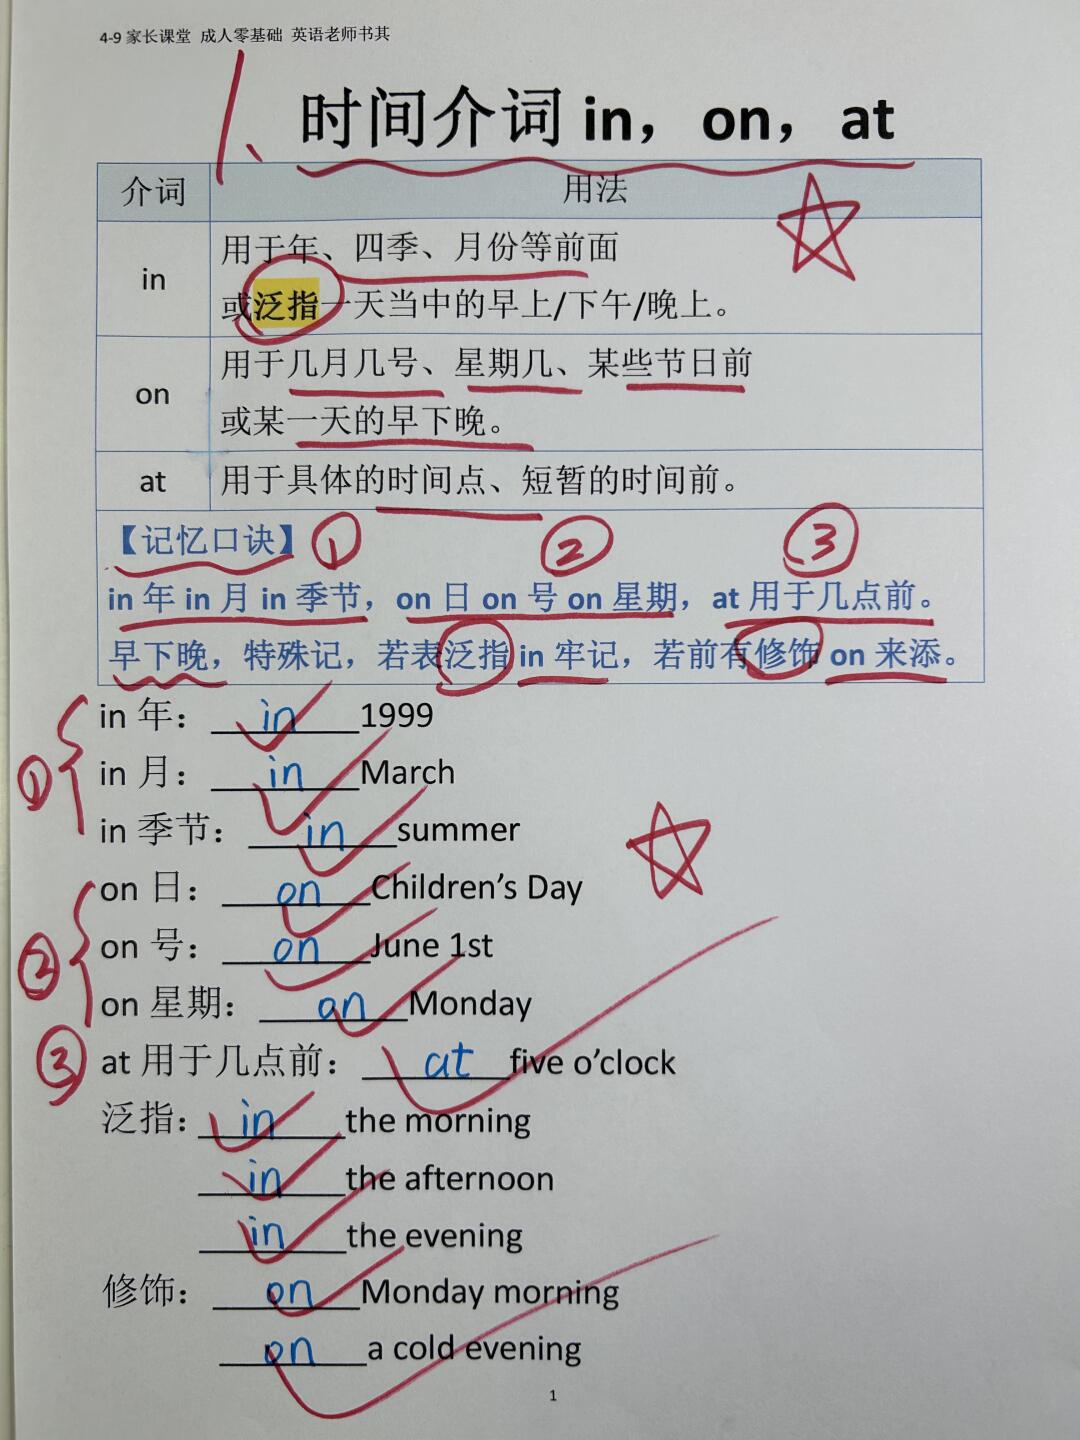 4-9 家长课堂 成人零基础 英语老师书其
1、
时间介词 in，on，at
介词 用法
in 用于年、四季、月份等前面
或泛指一天当中的早上/下午/晚上。
on 用于几月几号、星期几、某些节日前
或某一天的早下晚。
at 用于具体的时间点、短暂的时间前。
【记忆口诀】 ① ② ③
in 年 in 月 in 季节，on 日 on 号 on 星期，at 用于几点前。
早下晚，特殊记，若表泛指 in 牢记，若前有修饰 on 来添。
in 年：in 1999
① in 月：in March
in 季节：in summer
on 日：on Children’s Day
② on 号：on June 1st
on 星期：on Monday
③ at 用于几点前：at five o’clock
泛指：in the morning
in the afternoon
in the evening
修饰：on Monday morning
on a cold evening
1